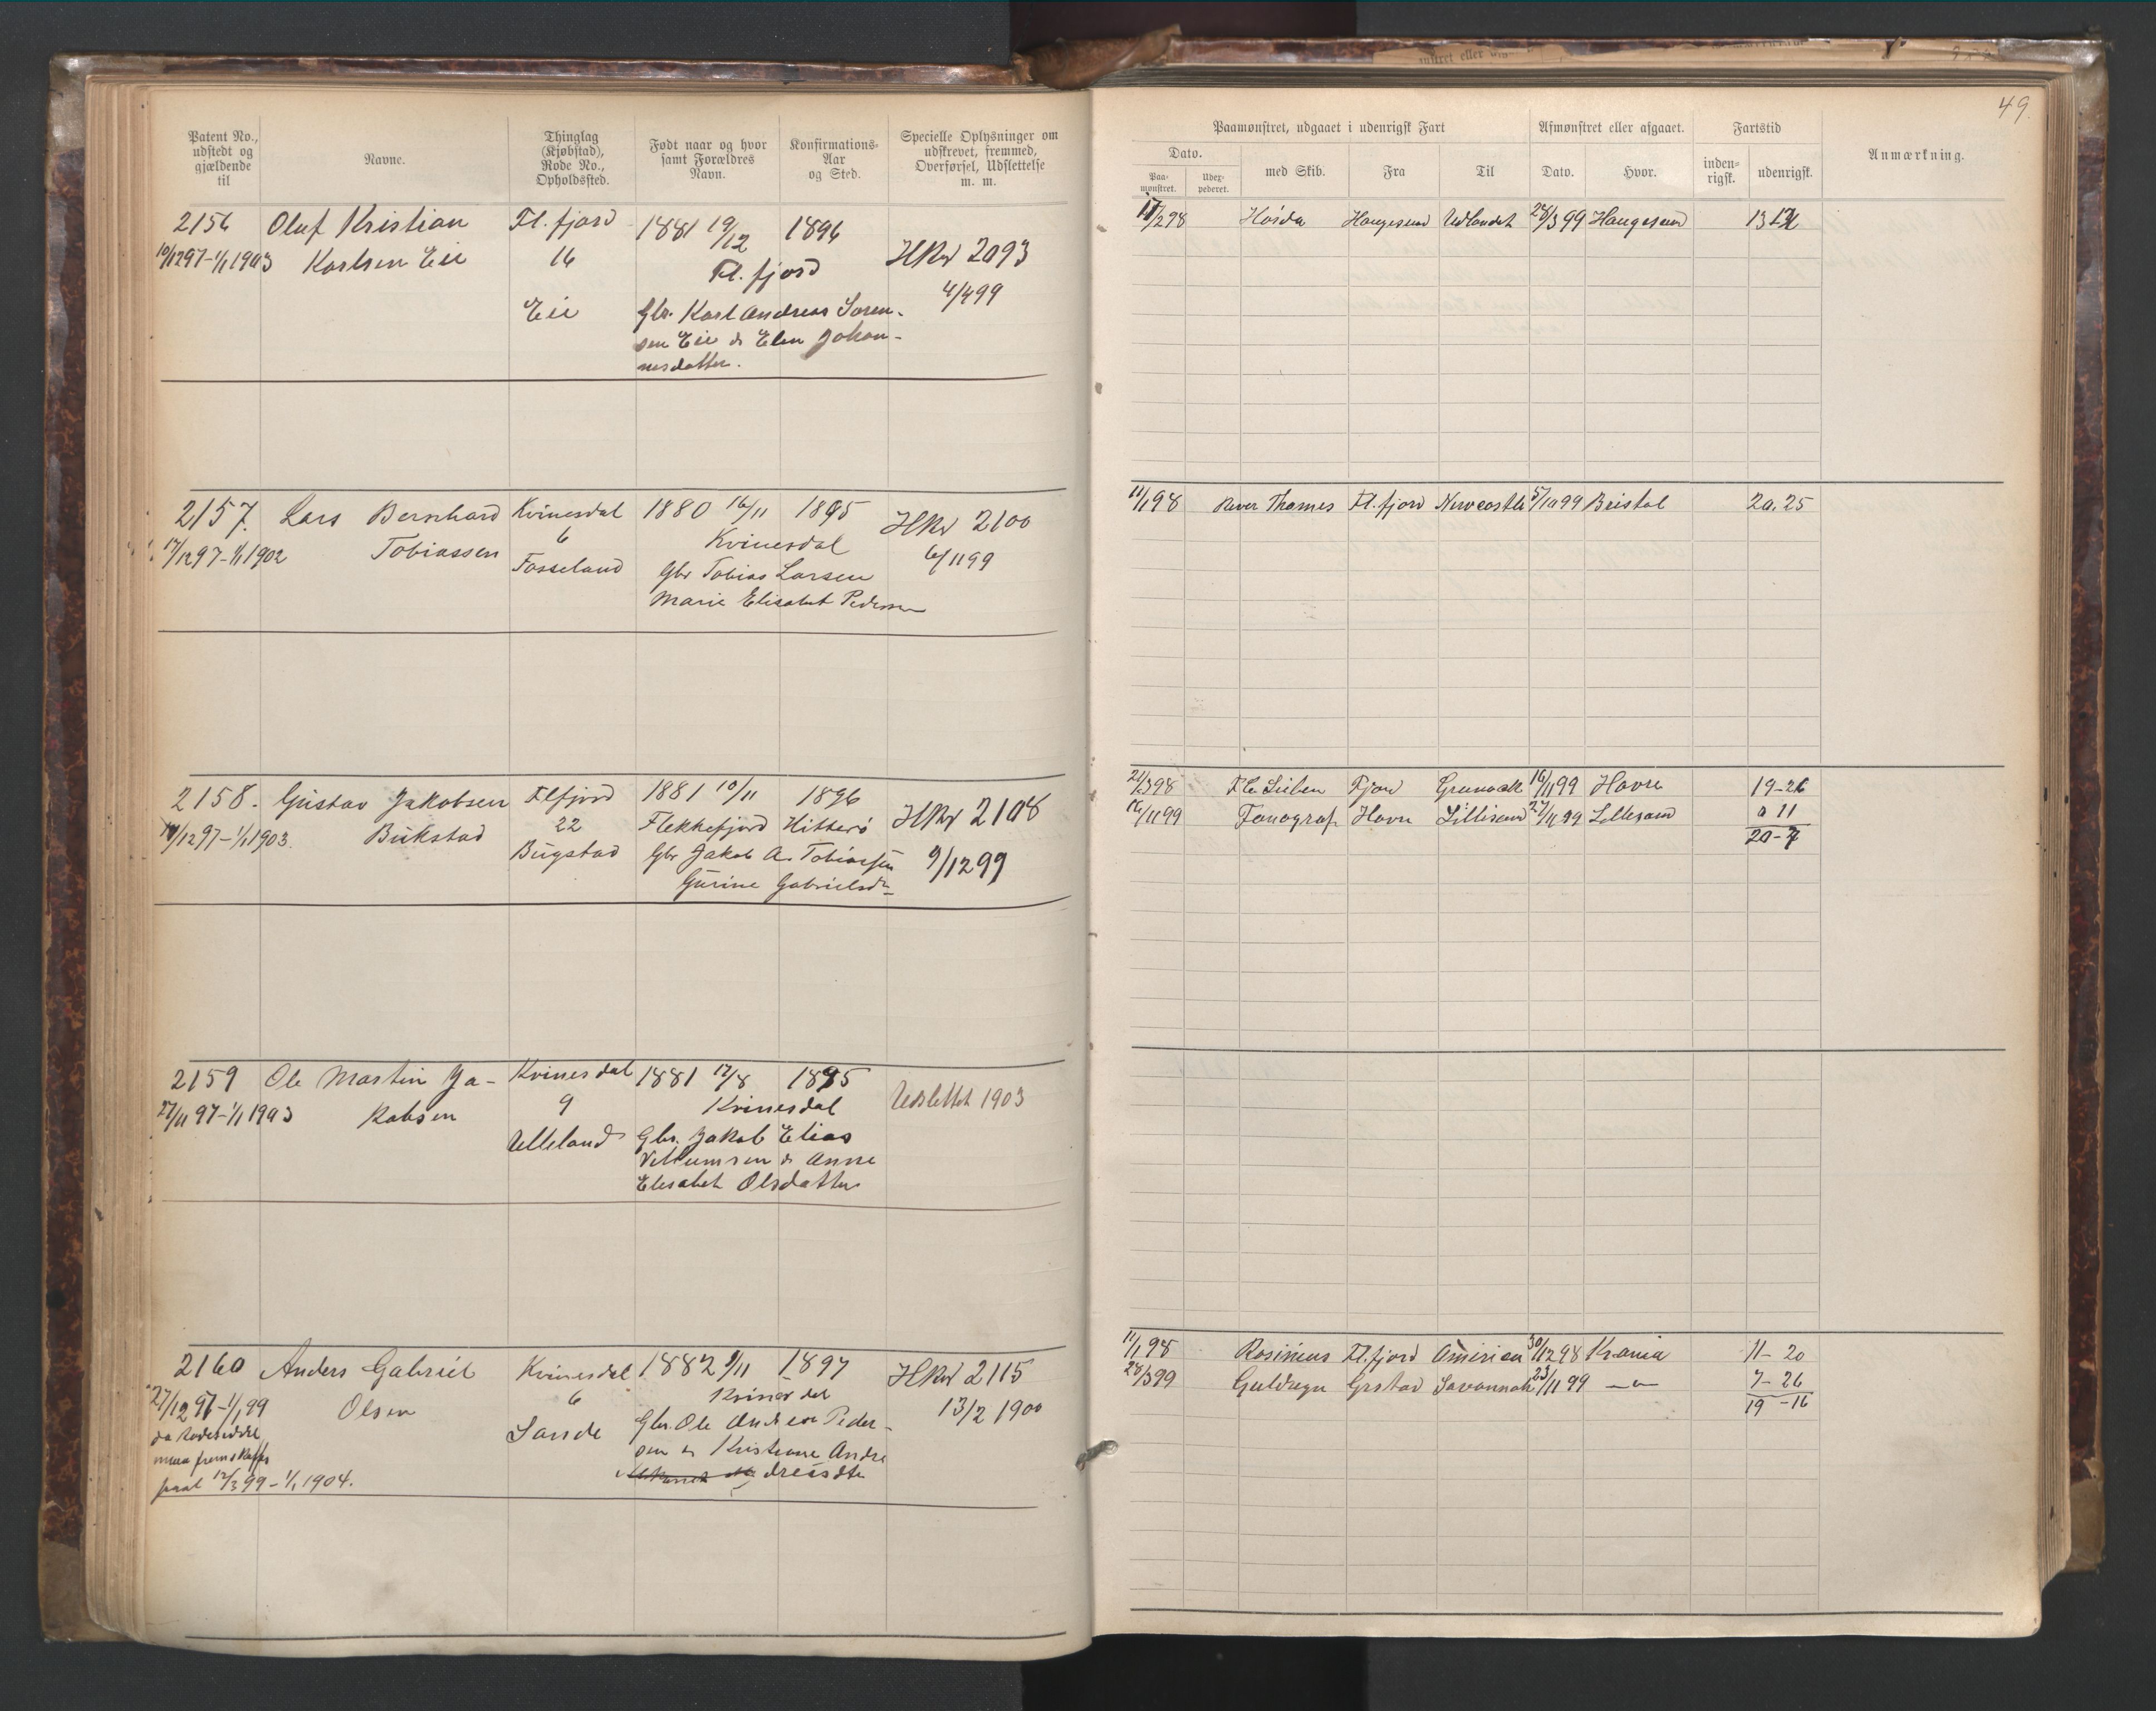 49.
Patent No., udstedt og gjældende til
Navne.
Thinglag (Kjøbstad), Rode No., Opholdssted.
Født naar og hvor samt Forældres Navn.
Konfirmations-Aar og Sted.
Specielle Oplysninger om udskrevet, fremmed, Overførsel, Udslettelse m. m.
Paamønstret, udgaaet i udenrigsk Fart
Afmønstret eller afgaaet.
Fartstid
Anmærkning.
Dato.
Paa-mønstret.
Udex-pederet.
med Skib.
Fra
Til
Dato.
Hvor.
inden-rigsk.
udenrigsk.
2156 Oluf Kristian Fl.fjord 1881 19/12 1896
10/12 97-1/1 1903 Karlsen Eie 16 Fl.fjord HRw 2093
Eie Gbr. Karl Andreas Soren- 4/4 99
sen Eie & Elen Johan-
nesdatter.
17/2 98 Haugesund Udlandet 28/3 99 Haugesund
2157. Lars Bernhard Kvinesdal 1880 16/11 1895 HRw 2100
17/12 97-1/1 1902 Tobiassen 6 Kvinesdal 6/11 99
Fosseland Gbr Tobias Larsen
Marie Elisabet Pedersen
11/1 98 River Thames Fl.fjord Newcastle 5/10 99 Bristol 20.25
2158. Gustav Jakobsen Flfjord 1881 10/11 1896 HRw 2108
/12 97-1/1 1903. Bukstad 22 Flekkefjord Hitterö
Bugstad Gbr Jakob A. Tobiassen 9/12 99
Gurine Gabrielsdr
21/3 98 16/11 99 Havre 19-26
16/11 99 Fonograf Havre Lillesand 27/11 99 Lillesand 0 11
20-7
2159 Ole Martin Ja- Kvinesdal 1881 17/8 1895 Udslettet 1903
27/11 97-1/1 1903 kobsen 9 Kvinesdal
Ulleland Gbr. Jakob Elias
Villumsen & Anne
Elisabet Olsdatter
2160 Anders Gabriel Kvinesdal 1882 9/11 1897 HRw 2115
27/12 97-1/1 99 Olsen 6 Kvinesdal 13/2 1900
Sande Gbr. Ole Andreas Peder-
sen & Kristiane Andre
dreisdtr
12/3 99-1/1 1904.
11/1 98 Rosinius Fl.fjord 30/12 98 Krania 11-20
28/3 99 Guldregn Grstad Savannah 23/11 99 —"— 7-26
19-16